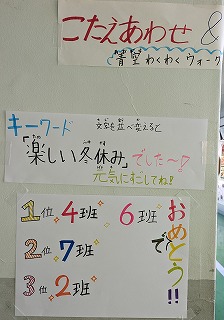 こたえあわせ &
青空わくわくウォーク
キーワード 文字を並べ変えると
「楽しい冬休み」でした～♡
元気にすごしてね!
1位 4班 6班
2位 7班
3位 2班
おめでとう!!